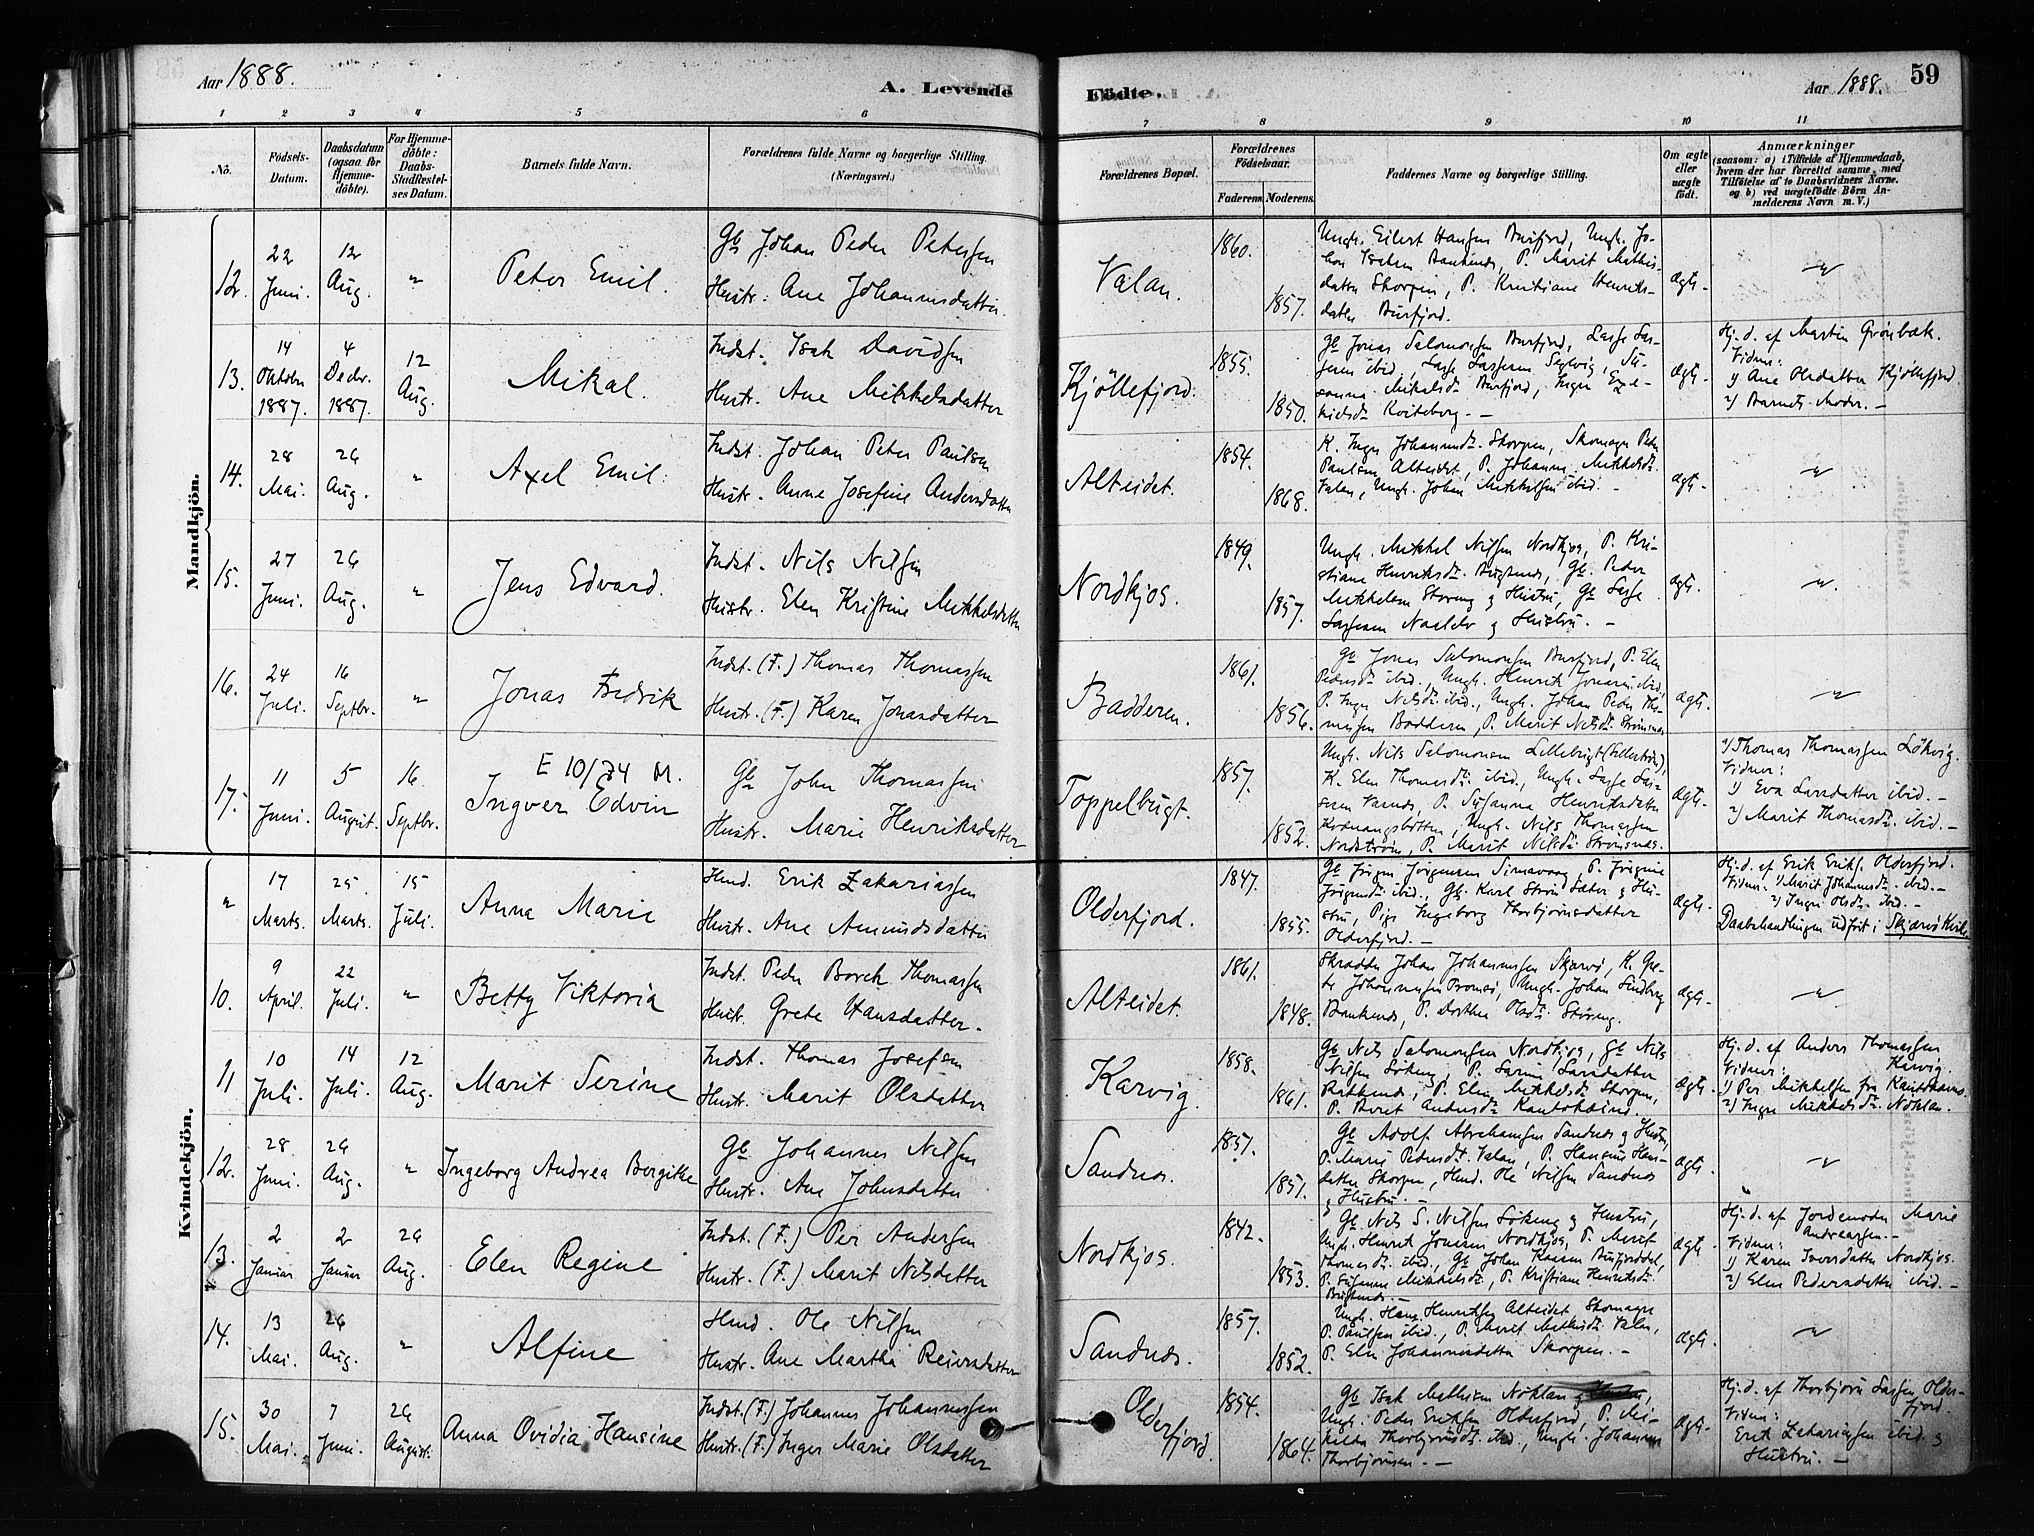 Aar 1888.
A. Levende
Födte.
Aar 1888.
59
1 2 3 4 5 6 7 8 9 10 11
No.
Födsels-Datum.
Daabsdatum (ogsaa for Hjemme-döbte).
For Hjemme-döbte: Daabs-Stadfæstel-ses Datum.
Barnets fulde Navn.
Forældrenes fulde Navne og borgerlige Stilling. (Næringsvei.)
Forældrenes Bopæl.
Forældrenes Födselsaar.
Faderens. Moderens.
Faddernes Navne og borgerlige Stilling.
Om ægte eller uægte födt.
Anmærkninger
(saasom: a) i Tilfælde af Hjemmedaab, hvem der har forrettet samme, med Tilföielse af to Daabsvidners Navne, og b) ved uægtefödte Börn An-melderens Navn m. V.)
Mandkjön.
12. 22 Juni. 12 Aug. " Peter Emil.
Gb Johan Peder Petersen
Hustr. Ane Johannesdatter.
Valan. 1860. 1857.
Ungk. Eilert Hansen Burfjord, Ungk. Jo-
P. Marit Mathis-
datter Skorpen, P. Kristiane Henriks-
datter Burfjord.
ægte. "
13. 14 Oktober 1887. 4 Decbr. 1887. 12 Aug. Mikal.
Indst. Isak Davidsen
Hustr. Ane Mikkelsdatter
Kjöllefjord. 1855. 1850.
Gb Jonas Salomonsen Burfjord, Lasse Las-
sesen ibid., Lasse Lassesen Seglvig, Su-
sanna Mikalsdt. Burfjord, Inger Eze-
kielsdt. Kviteberg. —
ægte.
Hj. d. af Martin Grönbæk.
Vidner:
1) Ane Olsdatter Kjöllefjord.
2) Barnets Moder. —
14. 28 Mai. 26 Aug. " Axel Emil.
Indst. Johan Peter Paulsen
Hustr. Anne Josefine Andersdatter
Alteidet. 1854. 1868.
K. Inger Johannesdt. Skorpen, Skomager Peder
Paulsen Alteidet, P. Johanna Mikkelsdt.
Valan, Ungk. Johan Mikkelsen ibid. —
ægte. "
15. 27 Juni. 26 Aug. " Jens Edvard.
Indst. Nils Nilsen
Hustr. Elen Kristine Mikkelsdatter
Nordkjos. 1849. 1857.
Ungk. Mikkel Nilsen Nordkjos, P. Kri-
stiane Henriksdt. Bugtenes, Gb. Peder
Mikkelsen Storeng og Hustru, Gb Lasse
Lassesen og Hustru. —
ægte. "
16. 24 Juli. 16 Septbr. " Jonas Fredrik
Indst. (F.) Thomas Thomassen
Hustr. (F.) Karen Jonasdatter
Badderen. 1861. 1856.
Gb Jonas Salomonsen Burfjord, P. Elen
Pedersdt ibid., Ungk. Henrik Jonassen ibid.,
P. Inger Nilsdt. ibid., Ungk. Johan Peder Tho-
massen Badderen, P. Marit Nilsdt. Strömsnes
ægte. "
17. 11 Juni. 5 August. 16 Septbr. E 10/74 M.
Ingver Edvin
Gb John Thomassen
Hustr. Marie Henriksdatter
Toppelbugt. 1857. 1852.
Ungk. Nils Salomonsen Lillebugt,
K. Elen Thomasdt. ibid., Ungk. Lasse Las-
sesen P. Susanna Henriksdatter
Kvænangsbotten, Ungk. Nils Thomassen
Nordström, P. Marit Nilsdt. Strömsnes.
ægte.
Thomas Thomassen Lökvig.
Vidner:
1) Eva Larsdatter ibid. —
2) Marit Thomasdt. ibid. —
Kvindekjön.
" 17 Marts. 25 Marts. 15 Juli. Anna Marie
Hmd. Erik Zakariassen
Hustr. Ane Amundsdatter
Olderfjord. 1847. 1855.
Gb Jörgen Jörgensen P. Jörgine
Jörgensdt ibid., Gb. Karl Ström Sæter og Hu-
stru, Pige Ingeborg Thorbjörnsdatter
Olderfjord. —
ægte.
Hj. d. af Erik Eriks. Olderfjord.
Vidner: 1) Marit Johannesdt. ibid. —
2) Inger Olsdt. ibid. —
Daabshandlingen udfört i Skjærvö Kirke
10. 9 April. 22 Juli. " Betty Viktoria
Indst. Peder Borch Thomassen
Hustr. Grete Hansdatter.
Alteidet. 1861. 1848.
Skrædder Johan Johannessen Skærvö, K. Gre-
te Johannessen Tromsö, Ungk. Johan Lindberg
P. Dorthea Olsdt. Störeng.
ægte. "
11 10 Juli. 14 Juli. 12 Aug. Marit Serine
Indst. Thomas Josefsen
Hustr. Marit Olsdatter
Karvig. 1858. 1861.
Gb Nils Salomonsen Nordkjos, Gb Nils
Nilsen Sökeng, P. Sarine Larsdatter
P. Elen Mikkelsdt. Skorpen,
P. Berit Andersdt Kautokeino
ægte.
Hj. d. af Anders Thomassen
Karvig.
Vidner:
1) Per Mikkelsen fra Kautokeino.
2) Inger Mikkelsdt. Nöklan.
12. 28 Juni. 26 Aug. " Ingeborg Andrea Bergitte
Gb Johannes Nilsen
Hustr. Ane Johnsdatter
Sandnes. 1857. 1851.
Gb Adolf Abrahamsen Sandnes og Hustru,
P. Marie Pedersdt. Valan, P. Hansine Hans-
datter Skorpen, Hmd. Ole Nilsen Sandnes
og Hustru. —
ægte. "
13. 2 Januar 2 Januar 26 Aug. Elen Regine
Indst. (F.) Per Andersen
Hustr. (F.) Marit Nilsdatter
Nordkjos. 1842. 1853.
Gb. Nils S. Nilsen Sökeng og Hustru,
Ungk. Henrik Jonassen Nordkjos, P. Marit
Thomasdt. ibid., Gb Johan Kaasen Burfjorddal,
P. Susanna Mikkelsdt., P. Kristiane Henriksdt.
Bugtenes. —
ægte.
Hj. d. af Jordemoder Marie
Andreassen. —
Vidner:
1) Karen Iversdatter Nordkjos.
2) Elen Pedersdatter ibid. —
14. 13 Mai. 26 Aug. " Alfine
Hmd. Ole Nilsen
Hustr. Ane Martha Reiersdatter
Sandnes. 1857. 1852.
Ungk. Hans Henriksen Alteidet, Skomager
P. Paulsen ibid., P. Marit Mathisdt. Valan,
P. Elen Johannesdatter Skorpen. —
ægte. "
15. 30 Mai. 7 Juni. 26 August. Anna Ovidia Hansine
Indst. (F.) Johannes Johannessen
Hustr. (F.) Inger Marie Olsdatter
Olderfjord 1854. 1864.
Gb Isak Mathisen Nöklan og Hustru,
Ungk. Peder Eriksen Olderfjord, P. Mi-
kelda Thorbjörnsdt. ibid., Ungk. Johannes
Thorbjörnsen. —
ægte.
Hj. d. af Thorbjörn Lassen Older-
fjord.
Vidner:
Erik Zakariassen ibid. og
Hustru. —